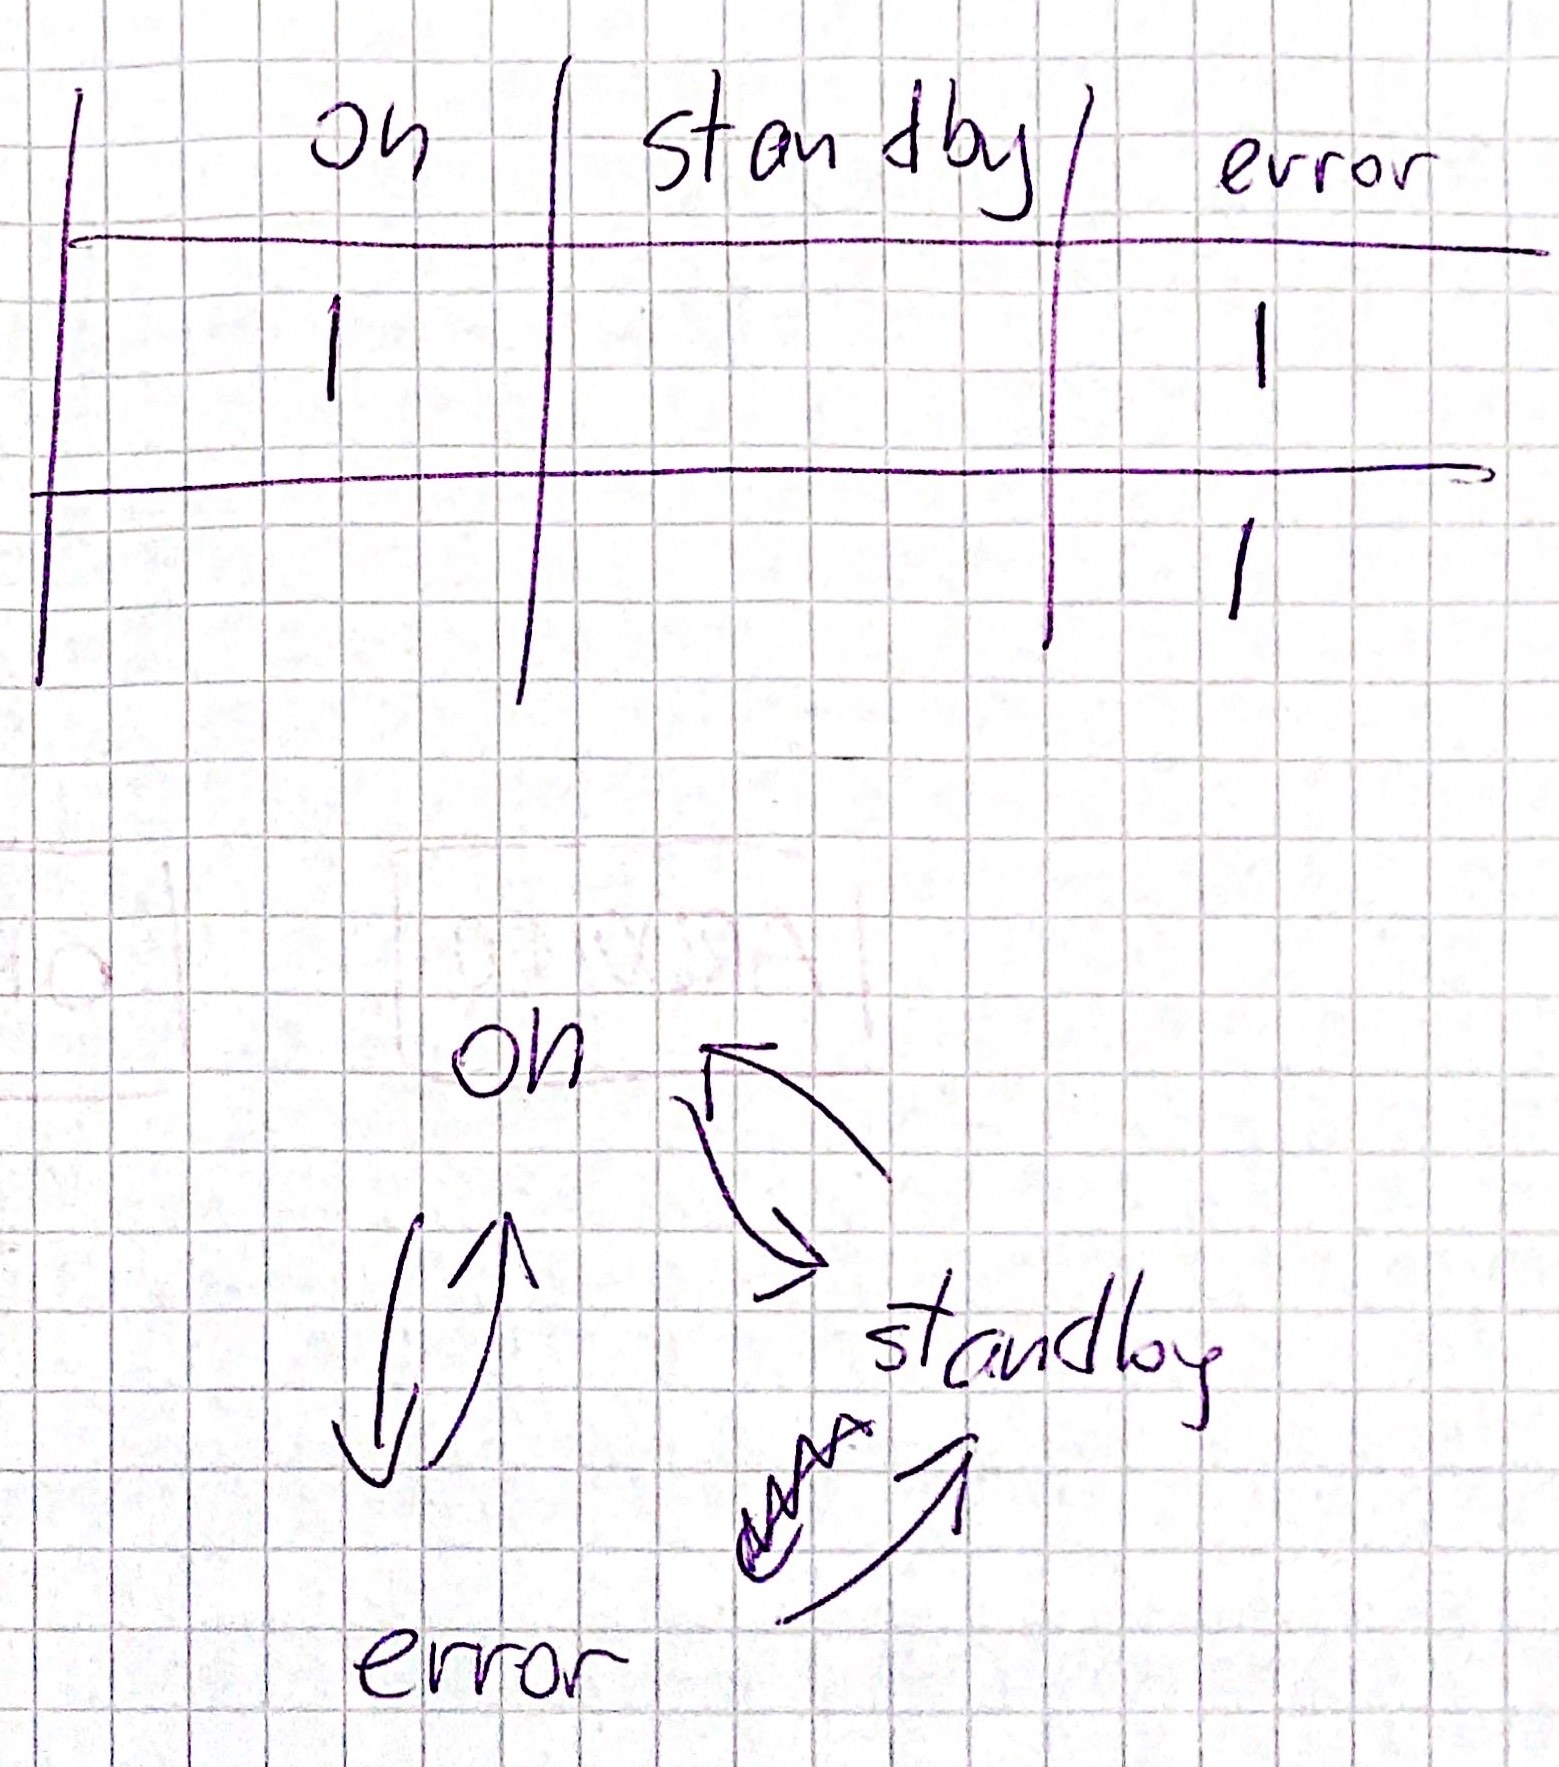 on standby error
1 1
1
on
standby
error